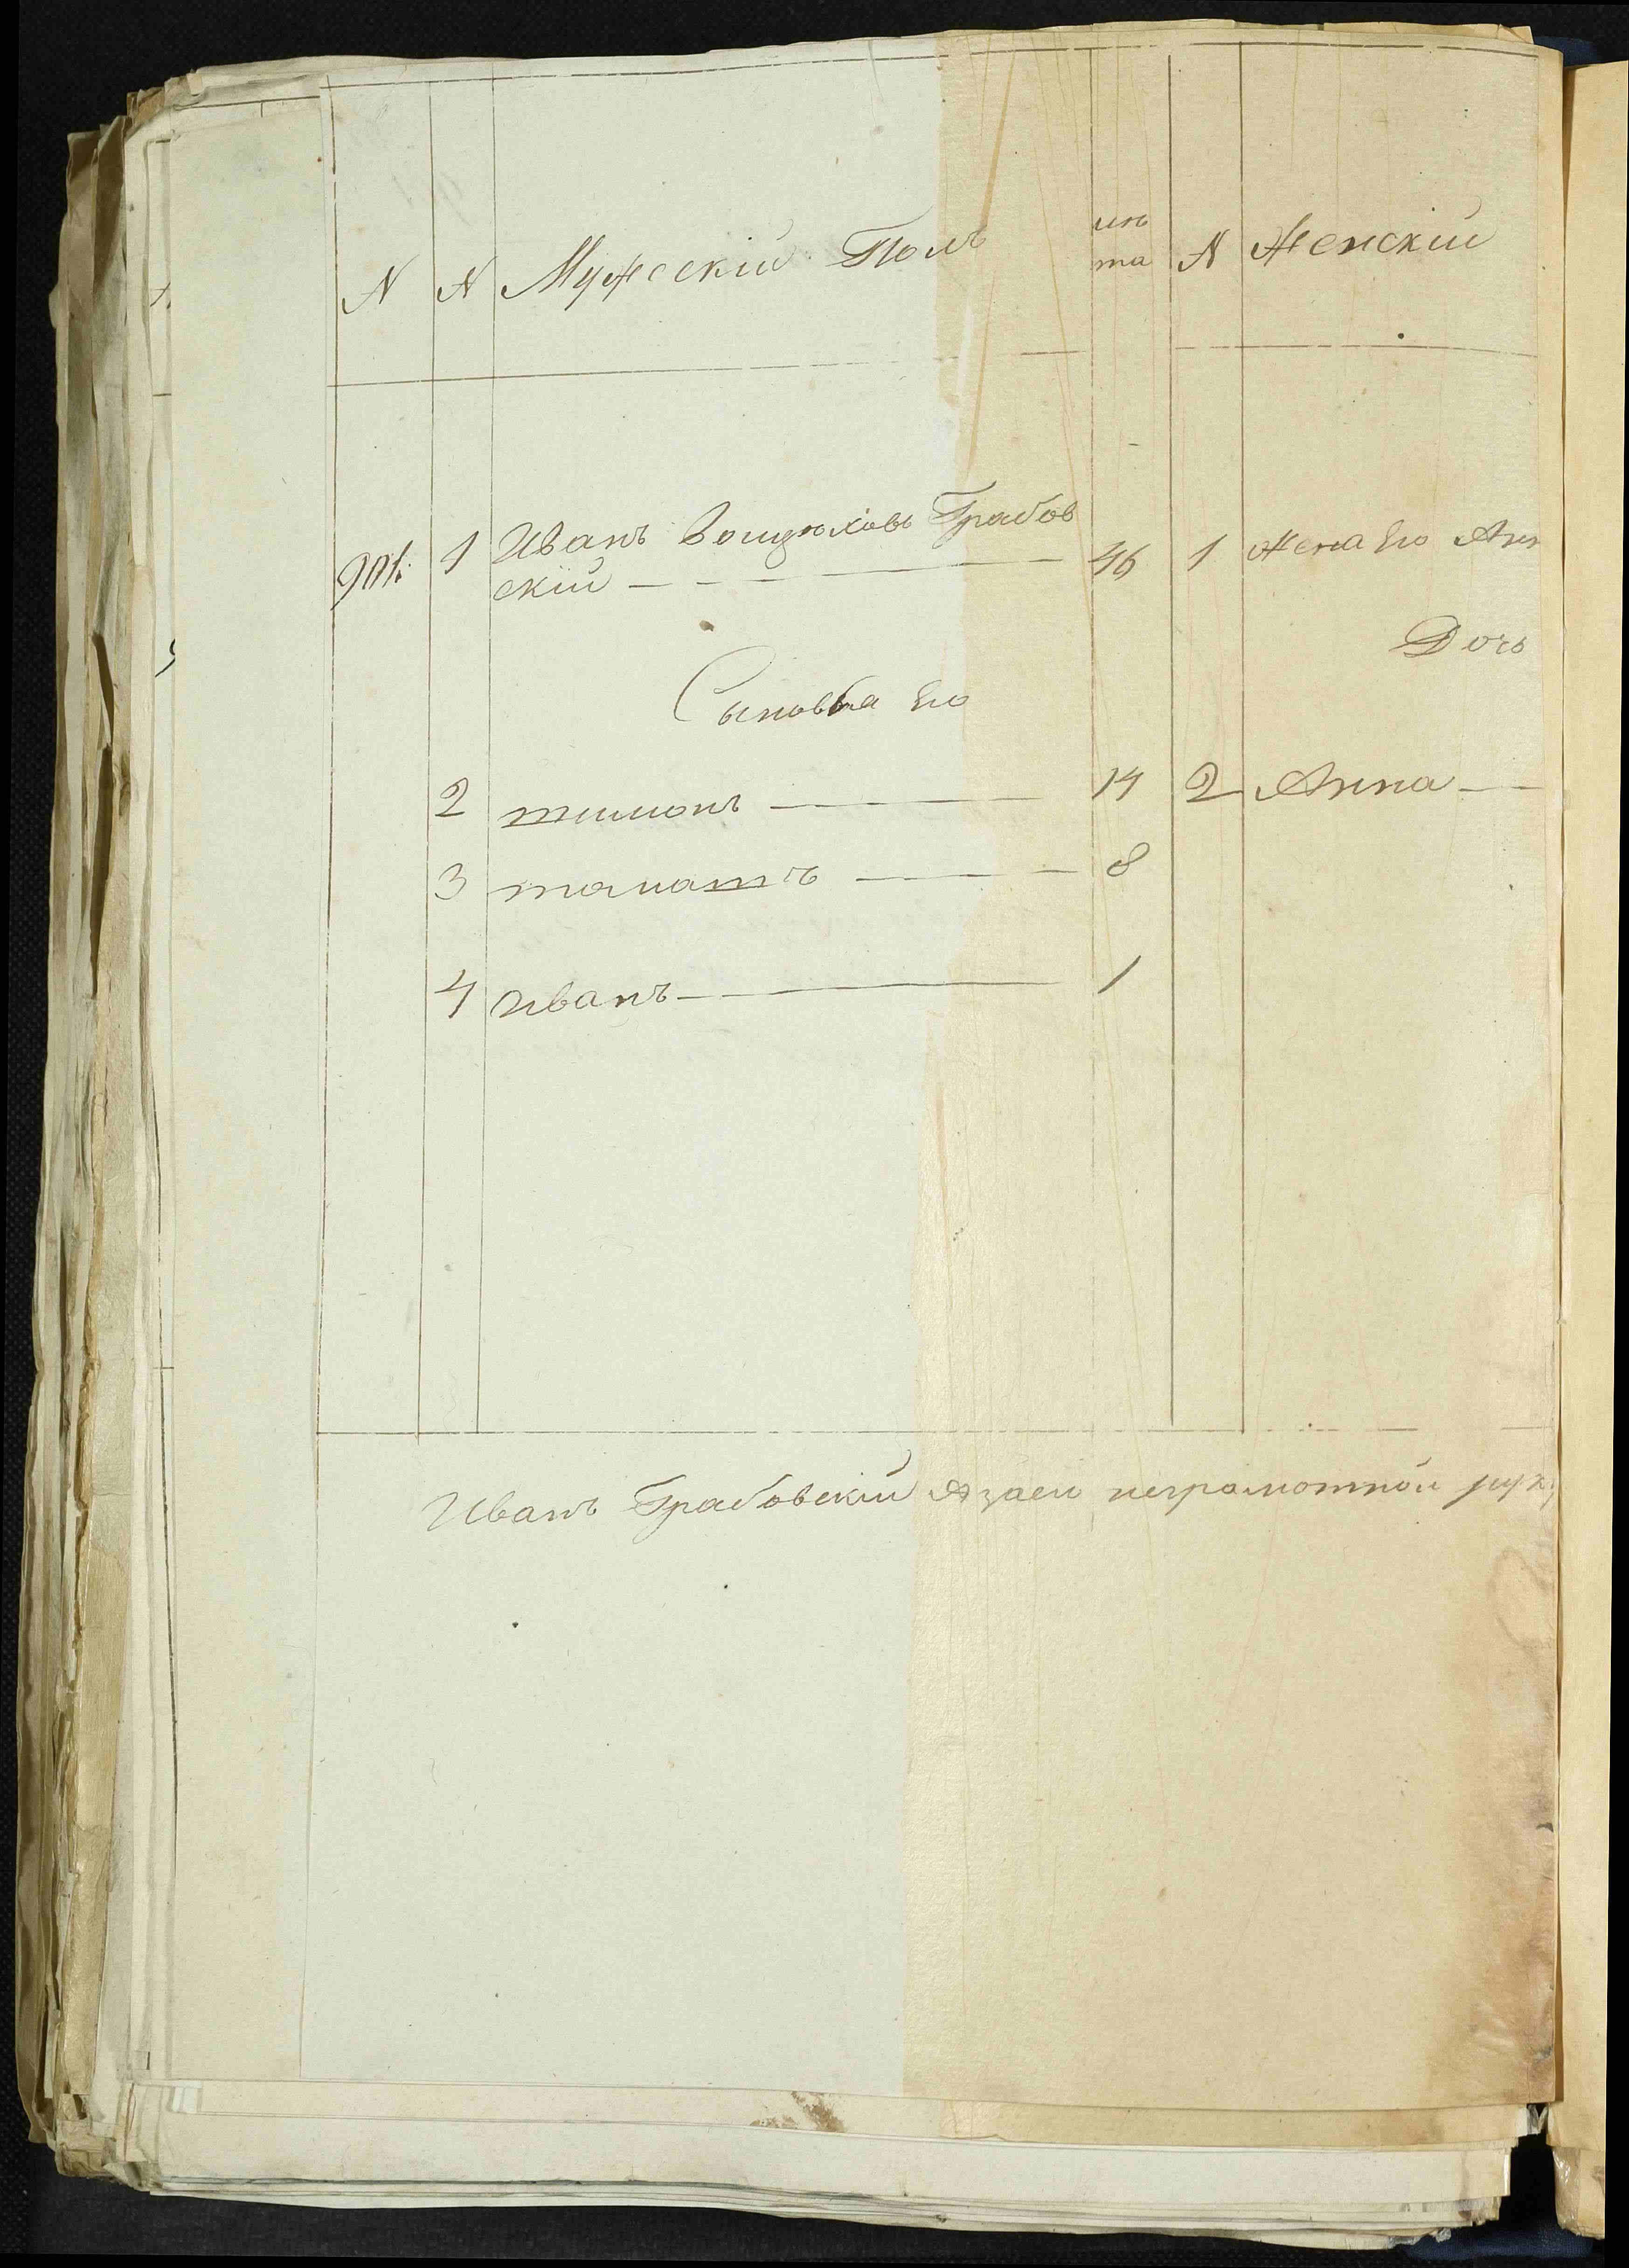 N N Мужескій Полъ лѣта N Женскій
1 Иванъ Войцѣховъ Грабов 46 1 Жена Его Анн
скій
Дочь
Сыновья Его
2 тимонъ 14 2 Анна
3 томашъ 8
4 иванъ 1
Иванъ Грабовскій Азаего неграмотной рук